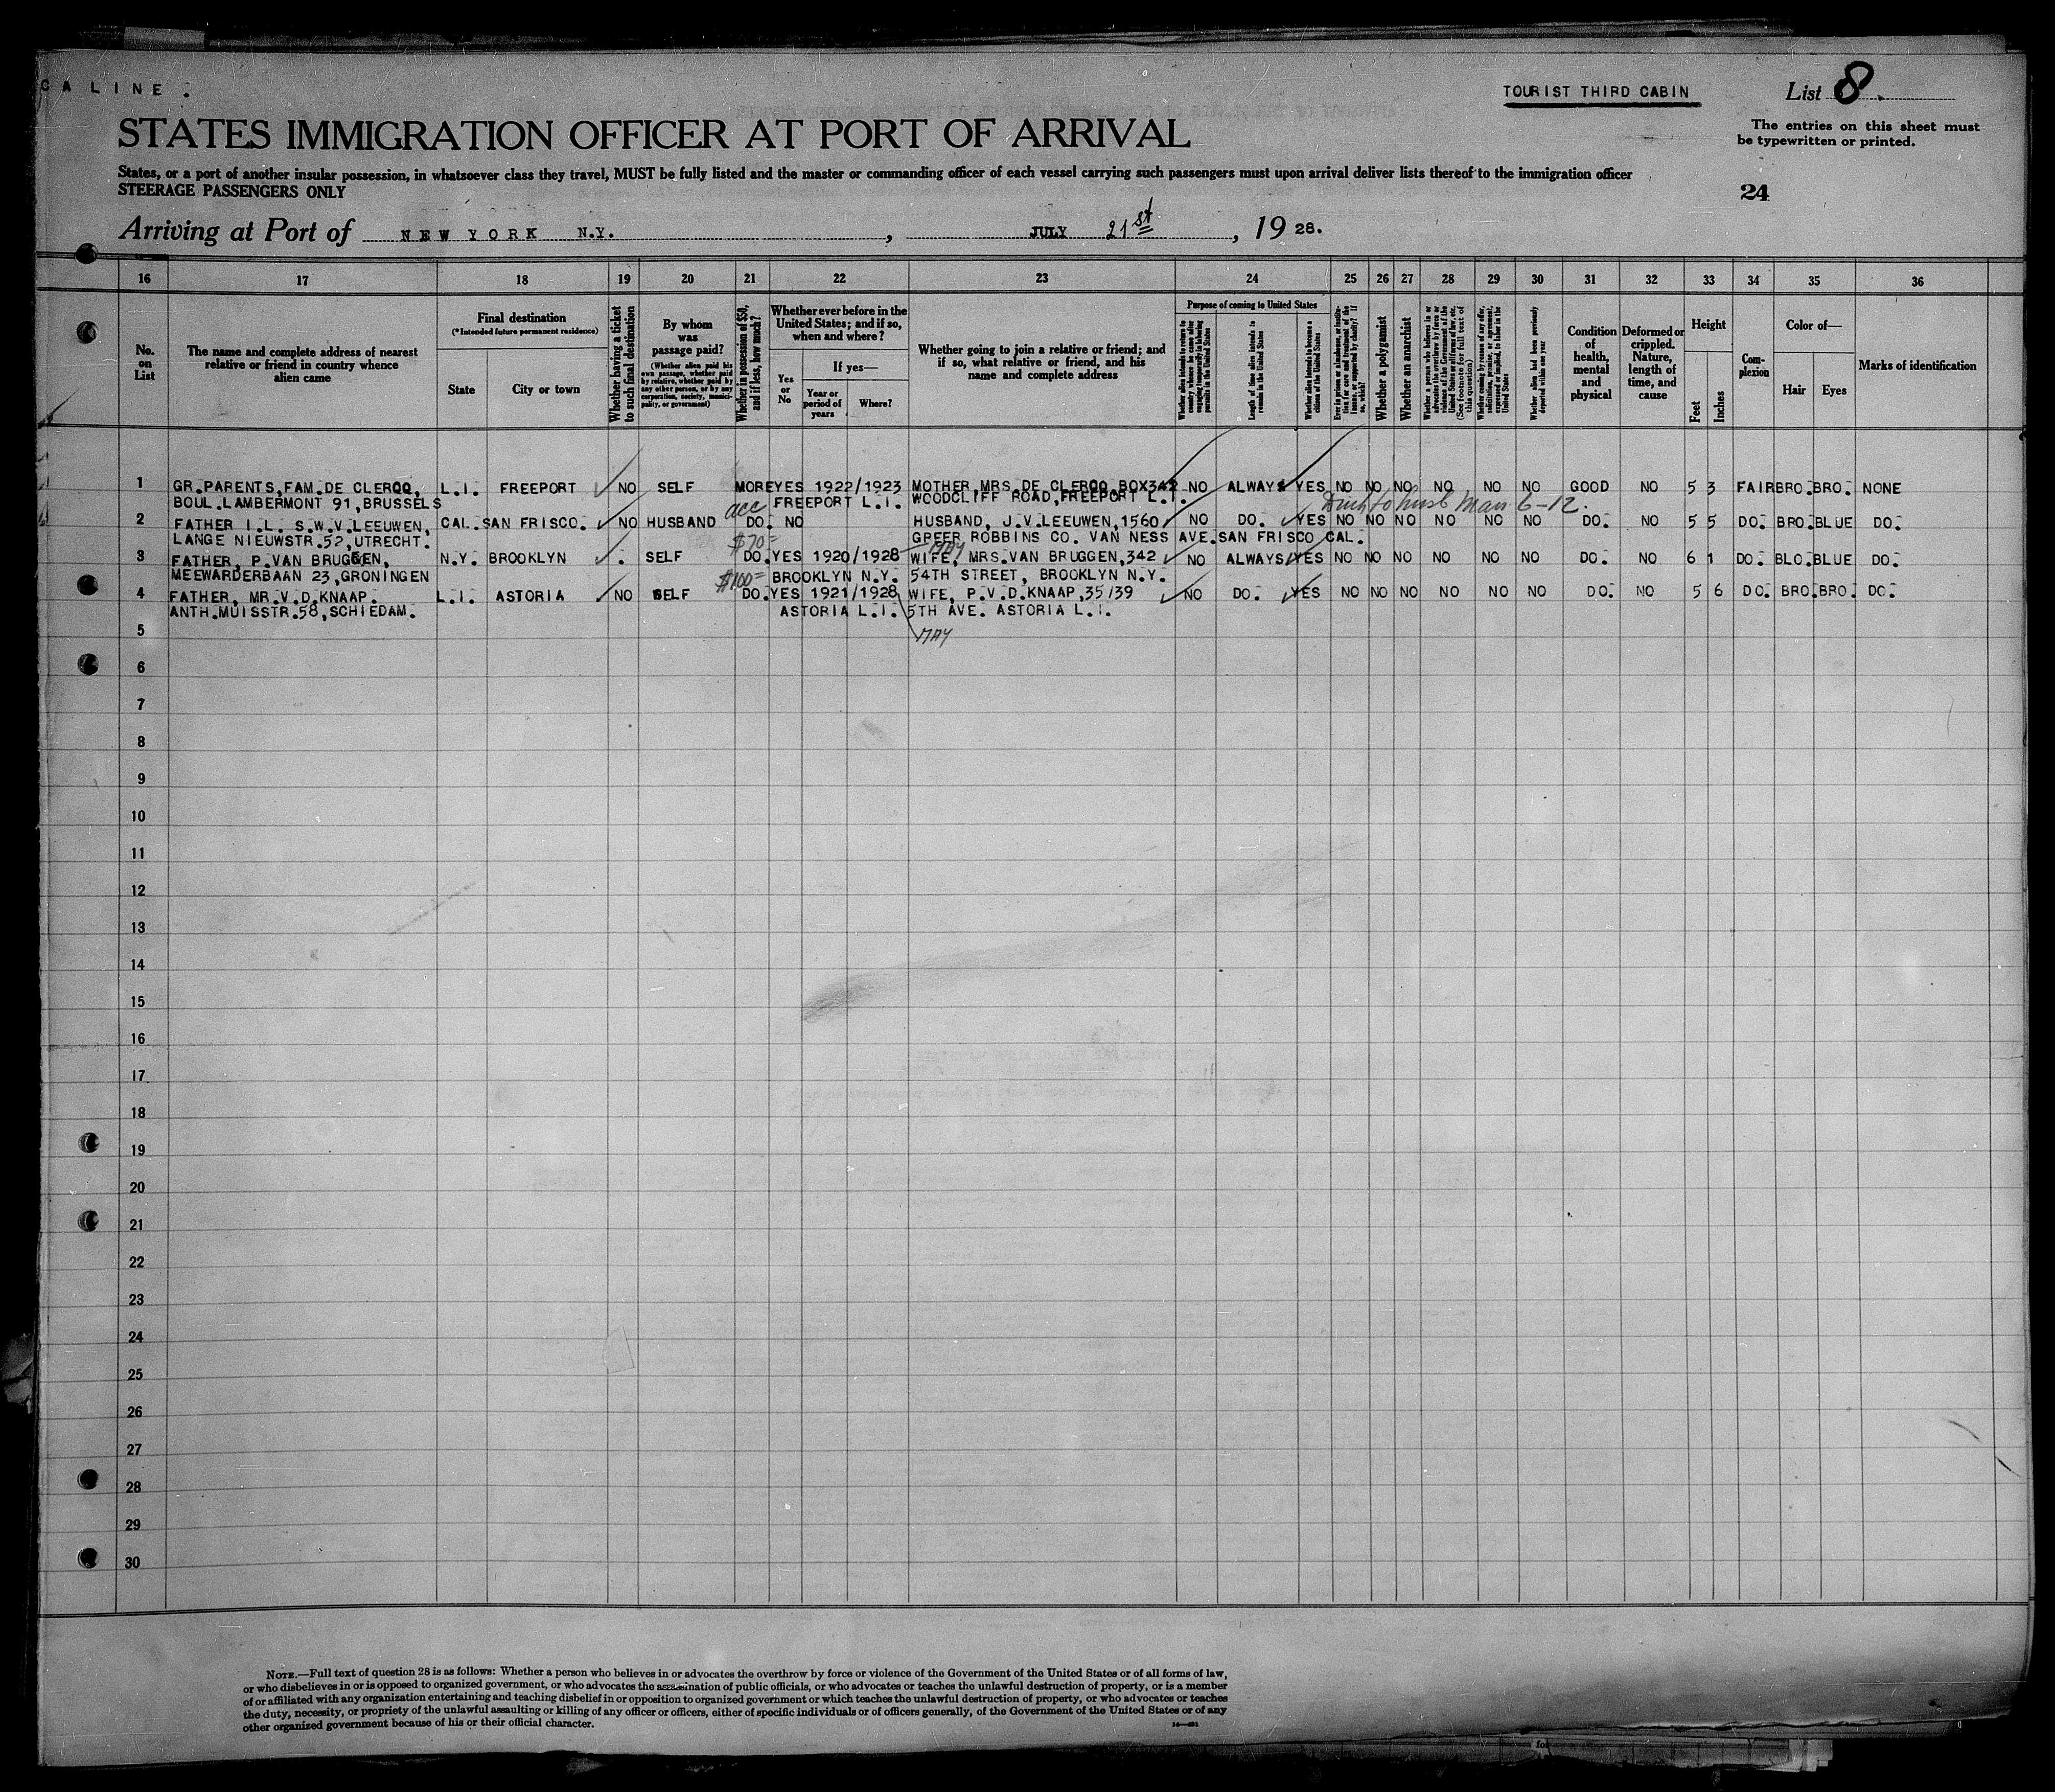 CA LINE.
TOURIST THIRD CABIN
List 8.
STATES IMMIGRATION OFFICER AT PORT OF ARRIVAL
The entries on this sheet must
be typewritten or printed.
States, or a port of another insular possession, in whatsoever class they travel, MUST be fully listed and the master or commanding officer of each vessel carrying such passengers must upon arrival deliver lists thereof to the immigration officer
STEERAGE PASSENGERS ONLY
24
Arriving at Port of NEW YORK N.Y., JULY 21st, 1928.
16 17 18 19 20 21 22 23 24 25 26 27 28 29 30 31 32 33 34 35 36
No. on List
The name and complete address of nearest
relative or friend in country whence
alien came
Final destination
(*Intended future permanent residence)
State
City or town
Whether having a ticket
to such final destination
By whom
was
passage paid?
(Whether alien paid his
own passage, whether paid
by relative, whether paid by
any other person, or by any
corporation, society, munici-
pality, or government)
Whether in possession of $50,
and if less, how much?
Whether ever before in the
United States; and if so,
when and where?
Yes
or
No
If yes—
Year or
period of
years
Where?
Whether going to join a relative or friend; and
if so, what relative or friend, and his
name and complete address
Purpose of coming to United States
Whether alien intends to return to
country whence he came after
engaging temporarily in laboring
pursuits in the United States
Length of time alien intends to
remain in the United States
Whether alien intends to become a
citizen of the United States
Whether a polygamist
Whether an anarchist
Whether alien had been previously
deported within one year
Condition
of
health,
mental
and
physical
Deformed or
crippled.
Nature,
length of
time, and
cause
Height
Feet
Inches
Com-
plexion
Color of—
Hair
Eyes
Marks of identification
1 GR.PARENTS,FAM.DE CLERQQ, L.I. FREEPORT NO SELF MORE YES 1922/1923 MOTHER MRS DE CLERQQ BOX342 NO ALWAYS YES NO NO NO NO NO NO GOOD NO 5 3 FAIR BRO. BRO. NONE
BOUL.LAMBERMONT 91,BRUSSELS acc FREEPORT L.I. WOODCLIFF ROAD,FREEPORT L.I. 6-12.
2 FATHER I.L. S.W.V.LEEUWEN, CAL. SAN FRISCO. NO HUSBAND DO. NO HUSBAND, J.V.LEEUWEN,1560 NO DO. YES NO NO NO NO NO NO DO. NO 5 5 DO. BRO. BLUE DO.
LANGE NIEUWSTR.52,UTRECHT. $70= GREER ROBBINS CO. VAN NESS AVE.SAN FRISCO CAL.
3 FATHER, P.VAN BRUGGEN, N.Y. BROOKLYN . SELF DO. YES 1920/1928 MAY WIFE, MRS.VAN BRUGGEN,342 NO ALWAYS YES NO NO NO NO NO NO DO. NO 6 1 DO. BLO. BLUE DO.
MEEWARDERBAAN 23,GRONINGEN $100= BROOKLYN N.Y. 54TH STREET, BROOKLYN N.Y.
4 FATHER, MR.V.D.KNAAP. L.I. ASTORIA NO SELF DO. YES 1921/1928 WIFE, P.V.D.KNAAP,35/39 NO DO. YES NO NO NO NO NO NO DO. NO 5 6 DO. BRO. BRO. DO.
ANTH.MUISSTR.58,SCHIEDAM. ASTORIA L.I. 5TH AVE. ASTORIA L.I.
5 MAY
6
7
8
9
10
11
12
13
14
15
16
17
18
19
20
21
22
23
24
25
26
27
28
29
30
NOTE.—Full text of question 28 is as follows: Whether a person who believes in or advocates the overthrow by force or violence of the Government of the United States or of all forms of law,
or who disbelieves in or is opposed to organized government, or who advocates the assassination of public officials, or who advocates or teaches the unlawful destruction of property, or is a member
of or affiliated with any organization entertaining and teaching disbelief in or opposition to organized government or which teaches the unlawful destruction of property, or who advocates or teaches
the duty, necessity, or propriety of the unlawful assaulting or killing of any officer or officers, either of specific individuals or of officers generally, of the Government of the United States or of any
other organized government because of his or their official character.